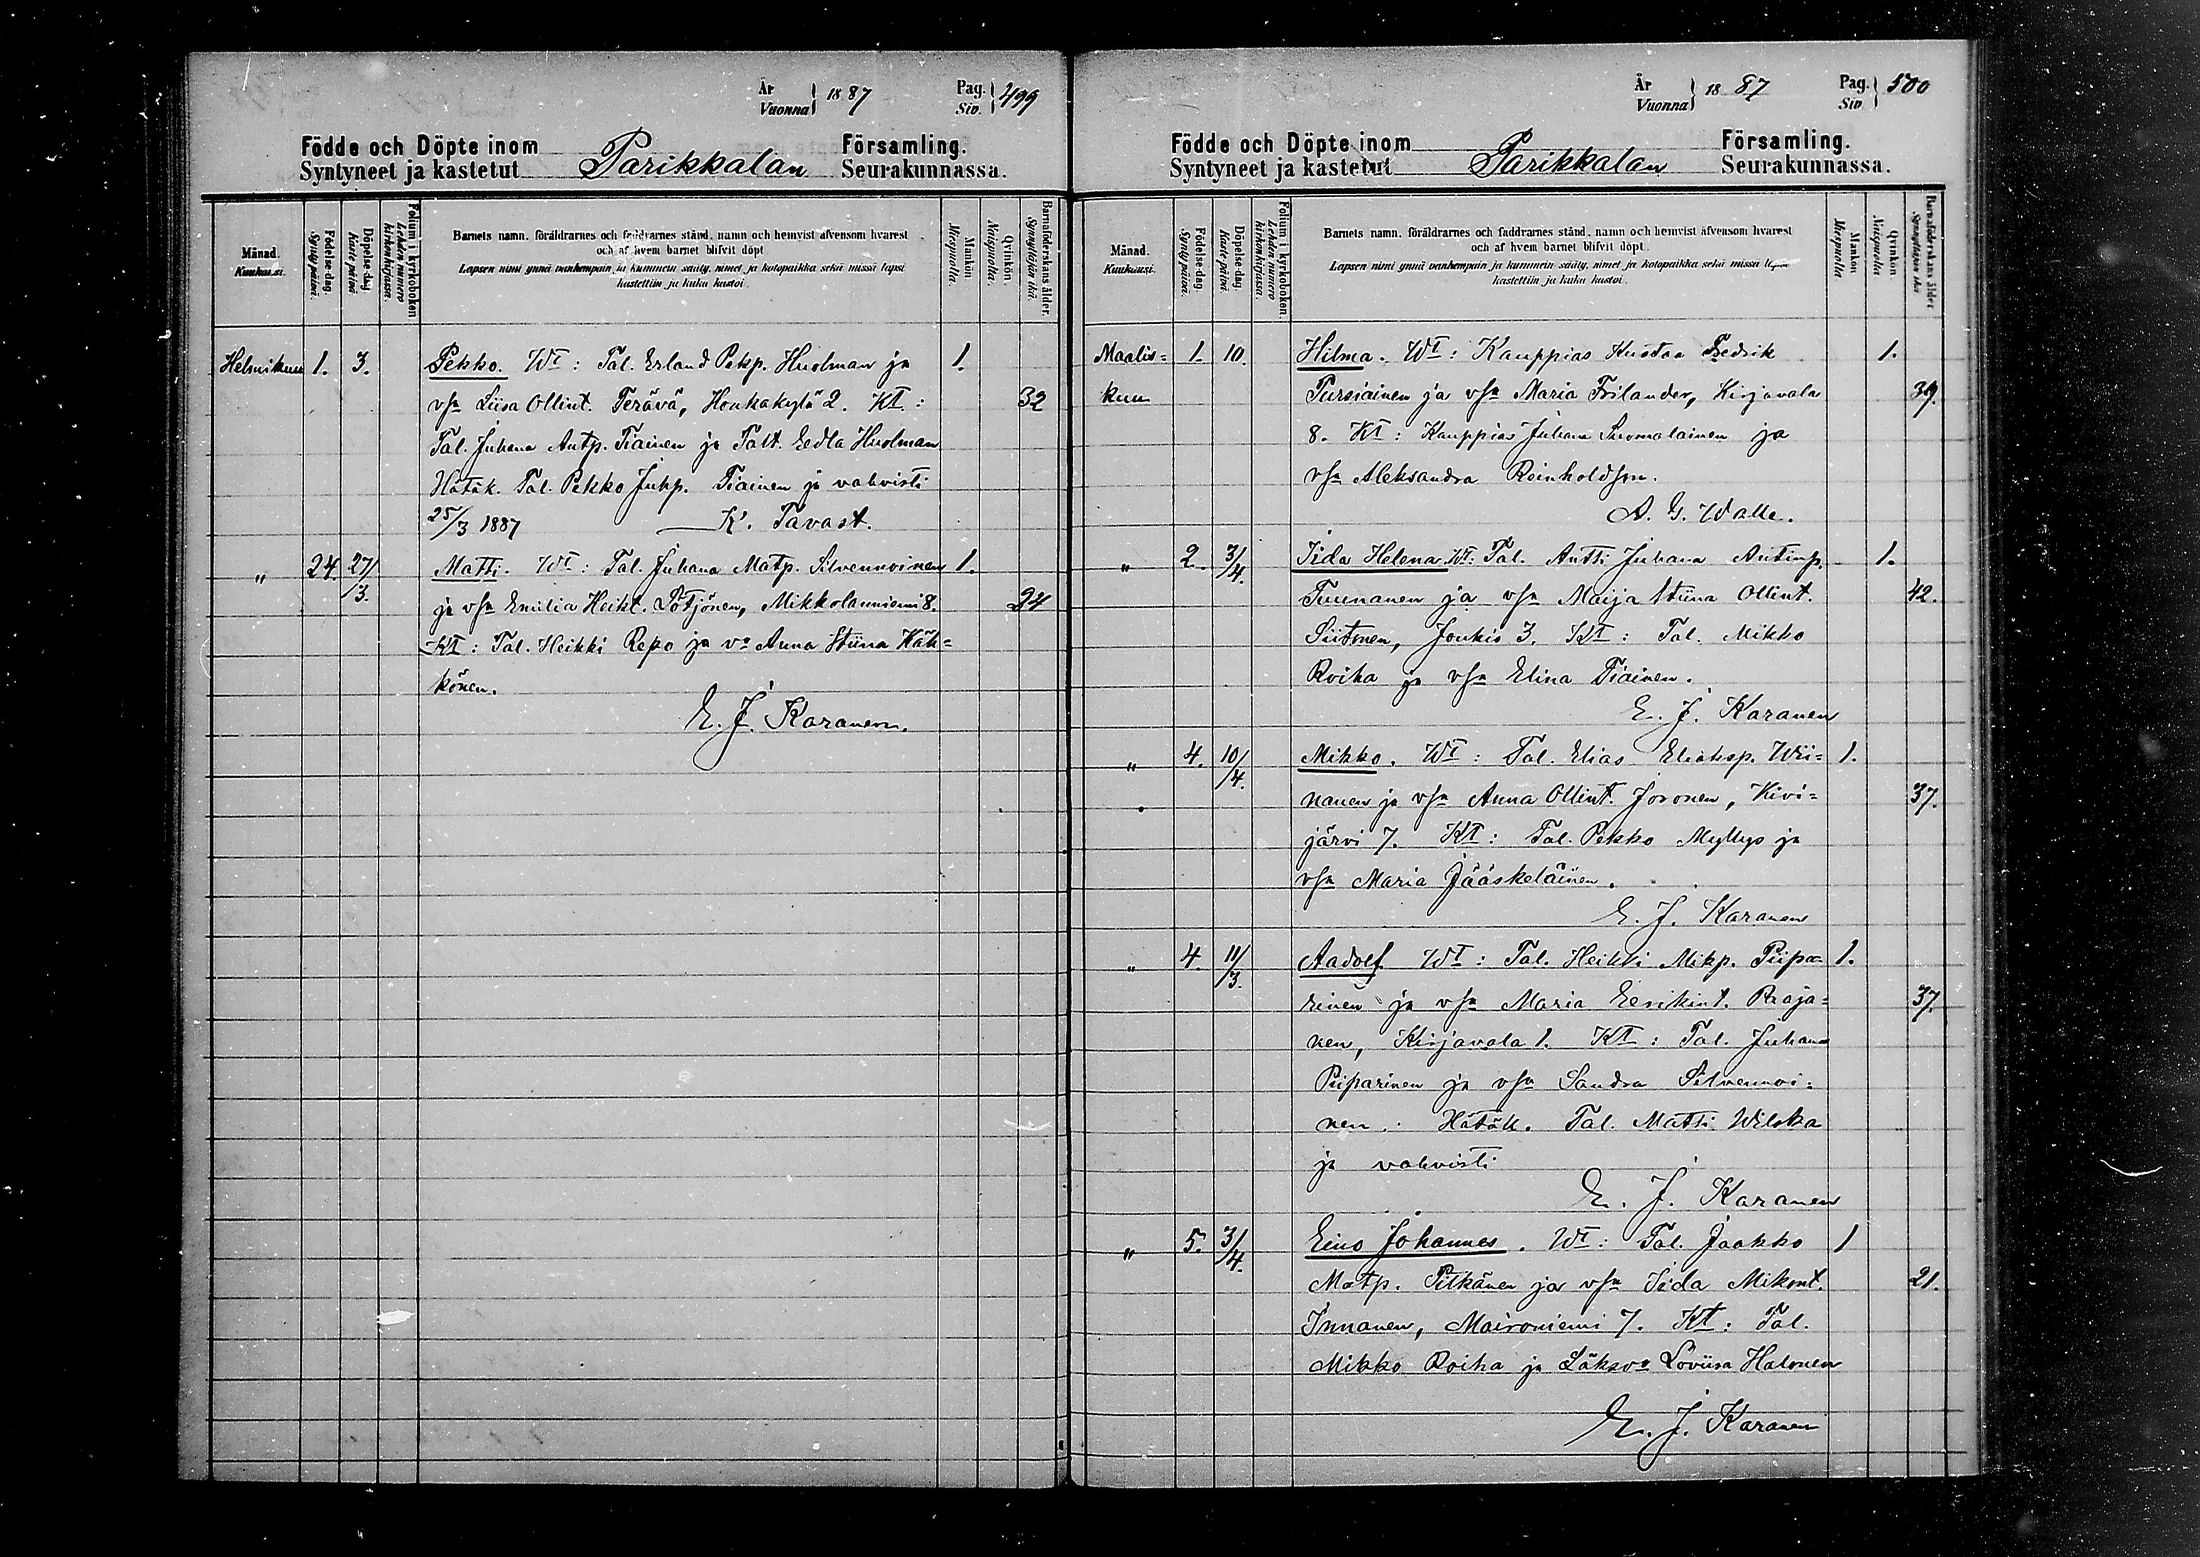 År
Vuonna } 1887 Pag.
Siv. } 499
Födde och Döpte inom Församling.
Syntyneet ja kastetut Parikkalan Seurakunnassa.
Månad.
Kuukausi.
Födelse-dag.
Synty päivä.
Döpelse-dag.
Kaste päivä.
Folium i kyrkoboken
Lehden numero
kirkonkirjassa.
Barnets namn, föräldrarnes och faddrarnes stånd, namn och hemvist äfvensom hvarest
och af hvem barnet blifvit döpt.
Lapsen nimi ynnä vanhempain ja kummein sääty, nimet ja kotopaikka sekä missä lapsi
kastettiin ja kuka kastoi.
Mankön
Miespuolta.
Qvinkön.
Naispuolta.
Barnaföderskans ålder.
Synnyttäjän ikä.
Helmikuu 1. 3. Pekko. Wt: Tal. Erland Pekp. Huolman ja 1.
vsa Liisa Ollint. Terävä, Honkakylä 2. Kt: 32
Tal. Juhana Antp. Tiainen ja Talt. Eedla Huolman
Hätäk. Tal. Pekko Juhp. Tiainen ja vahvisti
25/3 1887 K. Tavast.
" 24 27/3. Matti. Wt: Tal. Juhana Matp. Silvennoinen 1.
ja vsa Emilia Heikt. Lötjönen, Mikkolanniemi 8. 24
Kt: Tal. Heikki Repo ja vo Anna Stiina Häk=
könen.
E. J. Karanen.
År
Vuonna } 1887 Pag.
Siv. } 500
Födde och Döpte inom Församling.
Syntyneet ja kastetut Parikkalan Seurakunnassa.
Månad.
Kuukausi.
Födelse-dag.
Synty päivä.
Döpelse-dag.
Kaste päivä.
Folium i kyrkoboken
Lehden numero
kirkonkirjassa.
Barnets namn, föräldrarnes och faddrarnes stånd, namn och hemvist äfvensom hvarest
och af hvem barnet blifvit döpt.
Lapsen nimi ynnä vanhempain ja kummein sääty, nimet ja kotopaikka sekä missä lapsi
kastettiin ja kuka kastoi.
Mankön
Miespuolta.
Qvinkön.
Naispuolta.
Barnaföderskans ålder.
Synnyttäjän ikä.
Maalis= 1. 10. Hilma. Wt: Kauppias Kustaa Fredrik 1.
kuu Pursiainen ja vsa Maria Frilander, Kirjavala 39.
8. Kt: Kauppias Juhana Suomalainen ja
vsa Aleksandra Reinholdsson.
A. G. Walle.
" 2. 3/4. Iida Helena Wt: Tal. Antti Juhana Antinp. 1.
Tuunanen ja vsa Maija Stiina Ollint. 42.
Siitonen, Joukio 3. Kt: Tal. Mikko
Roiha ja vsa Elina Tiainen.
E. J. Karanen
" 4. 10/4. Mikko. Wt: Tal. Elias Eliaksp. Wii= 1.
nanen ja vsa Anna Ollint. Joronen, Kivi= 37.
järvi 7. Kt: Tal. Pekko Myllys ja
vsa Maria Jääskeläinen.
E. J. Karanen
" 4. 11/3. Aadolf. Wt: Tal. Heikki Mikp. Piipa= 1.
rinen ja vsa Maria Eerikint. Raja= 37.
nen, Kirjavala 1. Kt: Tal. Juhana
Piiparinen ja vsa Sandra Silvennoi=
nen. Hätäk. Tal. Matti Wilska
ja vahvisti
E. J. Karanen
" 5. 3/4. Eino Johannes. Wt: Tal. Jaakko 1
Matp. Pitkänen ja vsa Iida Mikont. 21.
Innanen, Moironiemi 7. Kt: Tal.
Mikko Roiha ja Läksvo Loviisa Halonen
E. J. Karanen